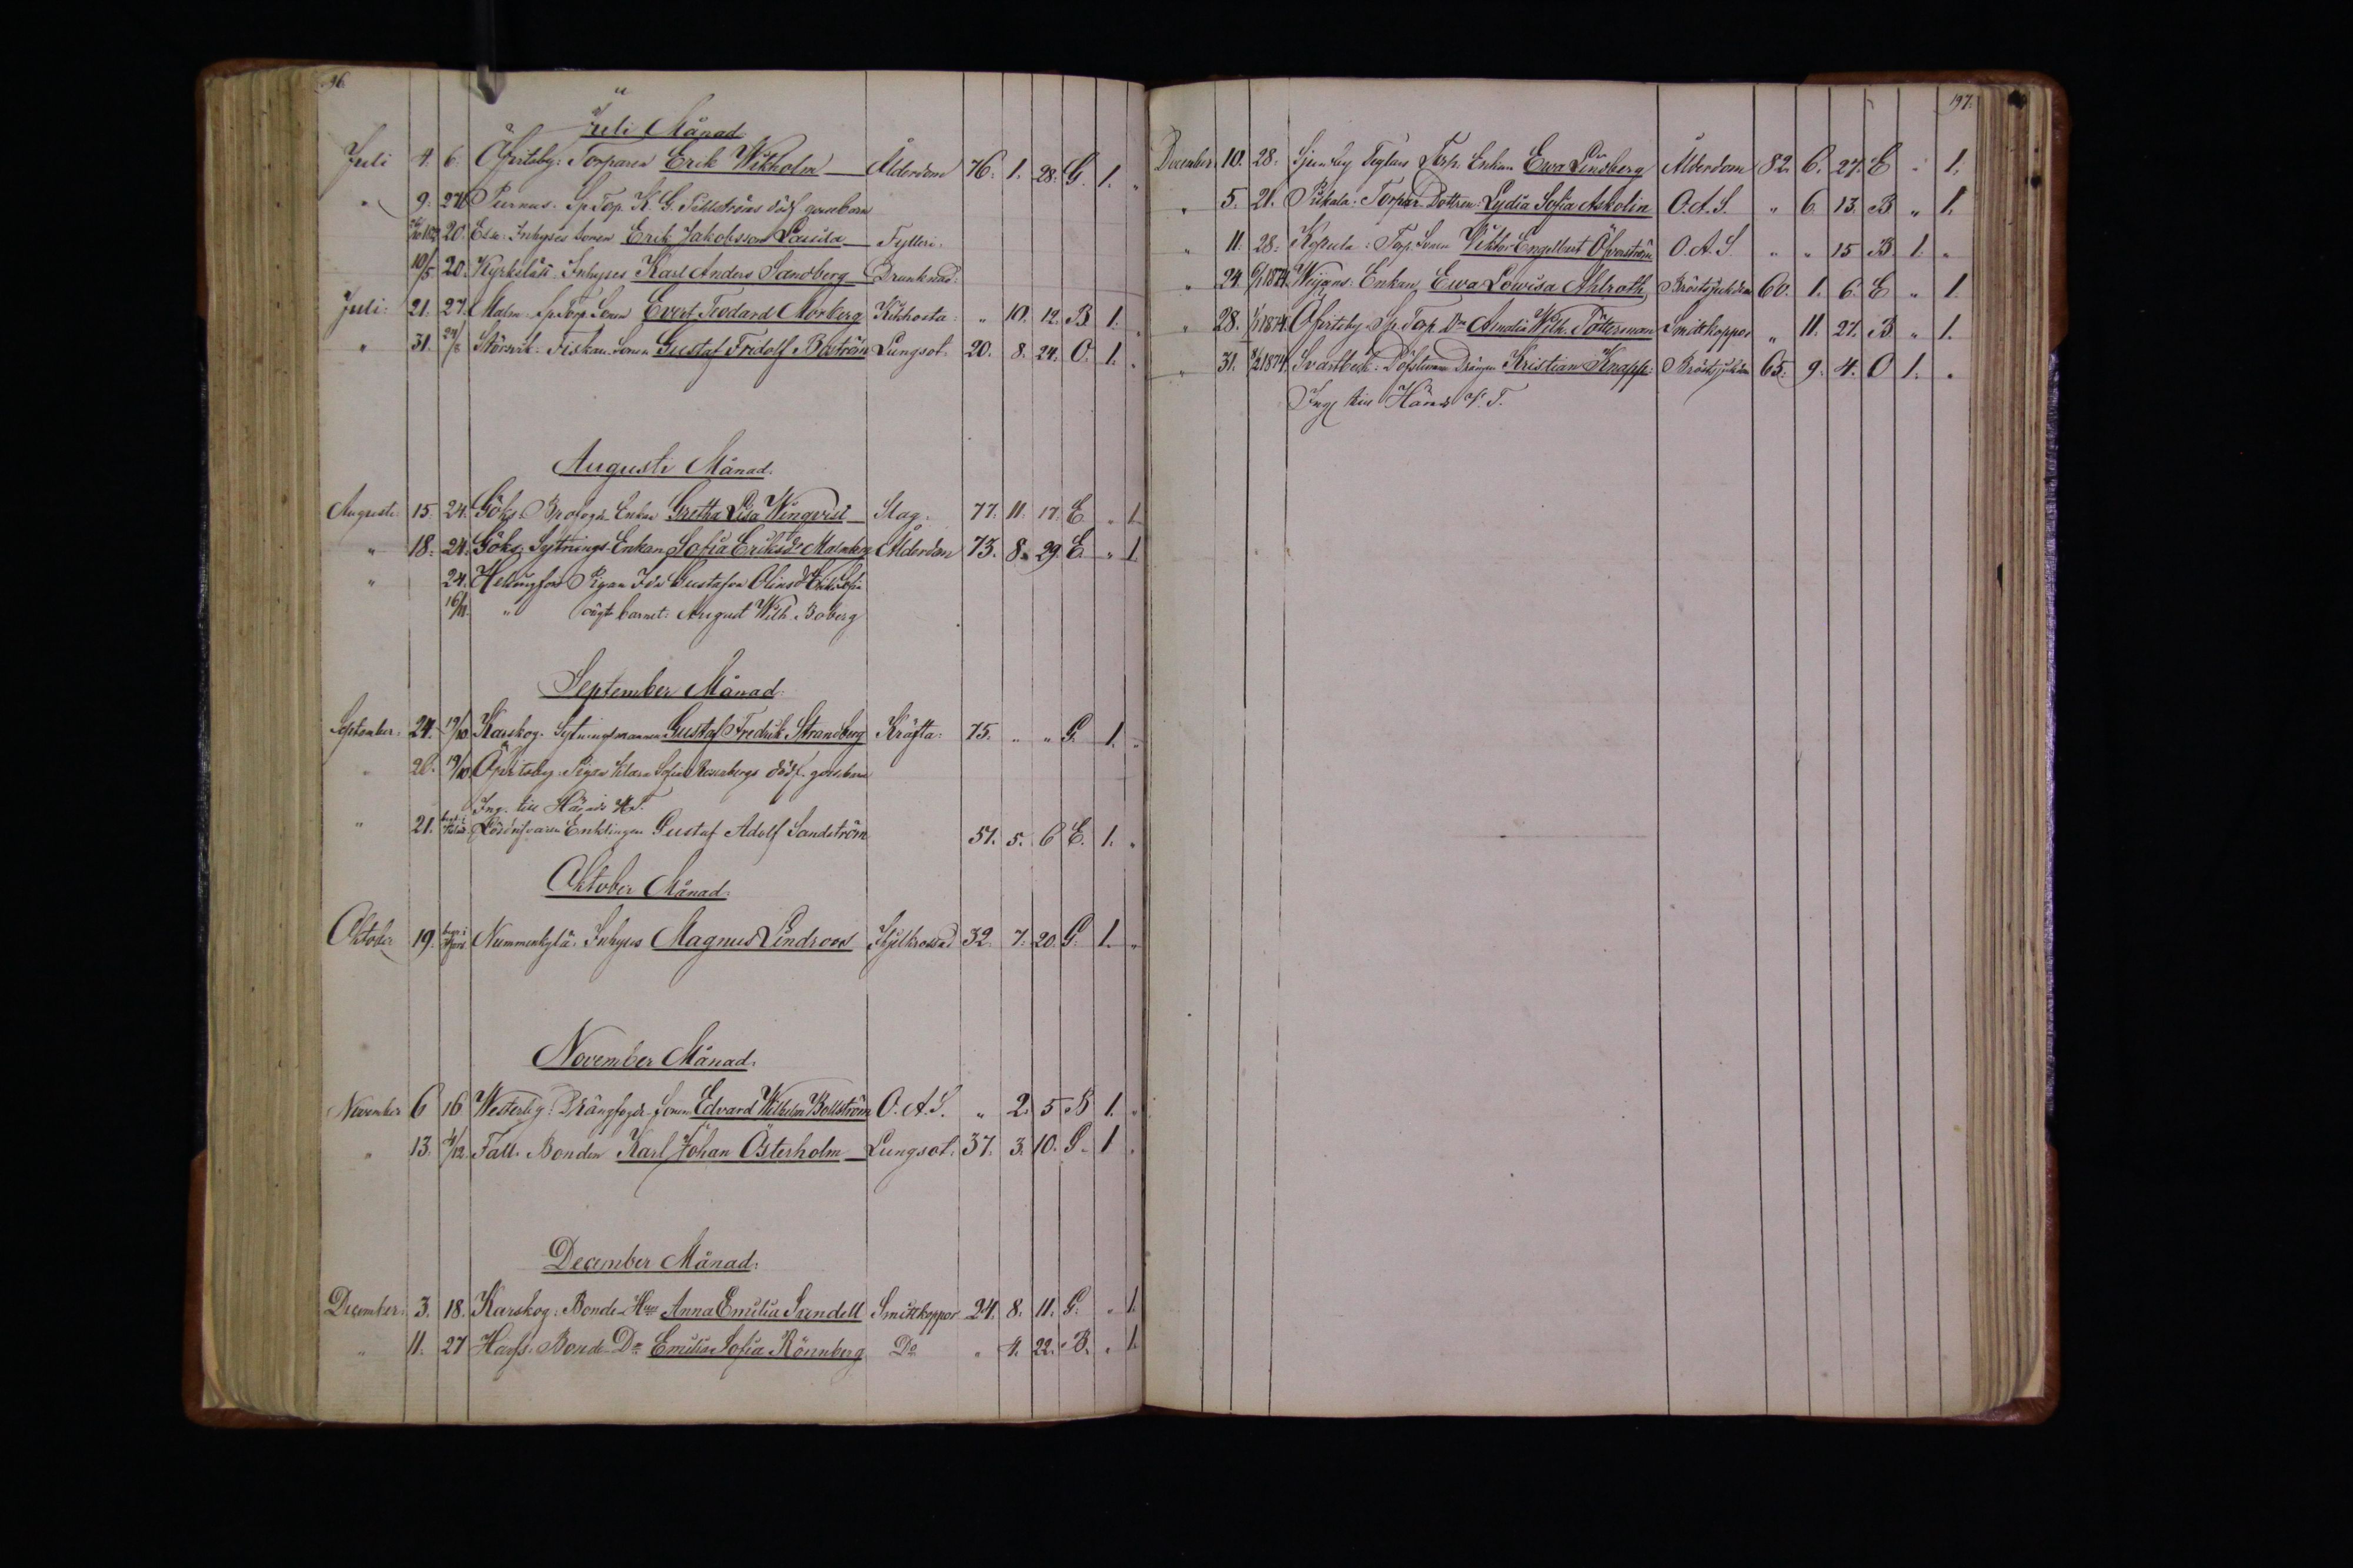 96
Juli Månad
Juli 4. 6. Öfvitsby: Torparen Erik Wikholm Ålderdom 76. 1. 28. G. 1. "
" 9. 27. Purnus. Sp Torp. K. G. dödf. gossebarn
20. Inhyses sonen Erik Jakobsson Fylleri.
10/5 20. Kyrkslätt Inhyses Karl Anders Sandberg Drunknad.
Juli: 21. 27. Malm Sp Torp Sonen Evert Teodard Monberg Kikhosta: " 10. 12. B 1. "
" 31. 24/8 Störsvik. Fiskare Sonen Gustaf Fridolf Boström Lungsot. 20. 8. 24. O. 1. "
Augusti Månad.
Augusti 15. 24. Göks. Enkan Gretha Lisa Winqvist Slag. 77. 11. 17. E. " 1.
" 18. 24. Göks. Sytnings Enkan Sofia Eriksdr Malmberg Ålderdom 73. 8. 29. E. " 1.
" 24. Helsingfors Pigan Ida Gustafva
16/11 " oägta barnet: August Wilh. Boberg
September Månad.
September: 24. 19/10 Karskog. Sytningsmannen Gustaf Fredrik Strandberg Kräfta: 75. " " G. 1. "
" 26. 19/10 Öfvitsby. Pigan Klara Sofia Rosenbergs dödf. gossebarn
Ing. till Härads H. T.
" 21. Lösdrifvaren Enklingen Gustaf Adolf Sandström 51. 5. 6 E. 1. "
Oktober Månad.
Oktober 19. Nummenkylä. Inhyses Magnus Lindroos Ihjelkrossad 32. 7. 20. G. 1. "
November Månad.
November 6 16 Westerby: Drängfogde Sonen Edvard Wilhelm Bollström O. A. S. " 2. 5 B 1. "
" 13. 4/12. Fall. Bonden Karl Johan Österholm Lungsot. 37. 3. 10. G. 1 "
December Månad.
December: 3. 18. Karskog: Bonde Hru Anna Emilia Sundell Smittkoppor 24. 8. 11. G. " 1.
" 11. 27 Bonde Dr Emilia Sofia Rönnberg Do " 4. 22. B. " 1.
197.
December 10. 28. Sjundby Teglars Torp. Enkan Ewa Lindberg Ålderdom 82. 6. 27. E " 1.
" 5. 21. Pikala. Torpar Dottren Lydia Sofia Askolin O. A. S. " 6. 13. B " 1.
" 11. 28. Kopula: Torp. Sonen Viktor Engelbert Öfverström O. A. S. " " 15 B 1. "
" 24. 6/1 1874. Enkan Ewa Lowisa Ahlroth Bröstsjukdom 60. 1. 6. E " 1.
" 28. 1/1 1874. Öfvitsby Sp. Torp. Dr Amalia Wilh. Tötterman Smittkoppor " 11. 27. B " 1.
" 31. 1874. Svartbeck: Döfstumme Drängen Kristian Knapp. Bröstsjukdom 65. 9. 4. O 1. "
Ing till Härads H. T.